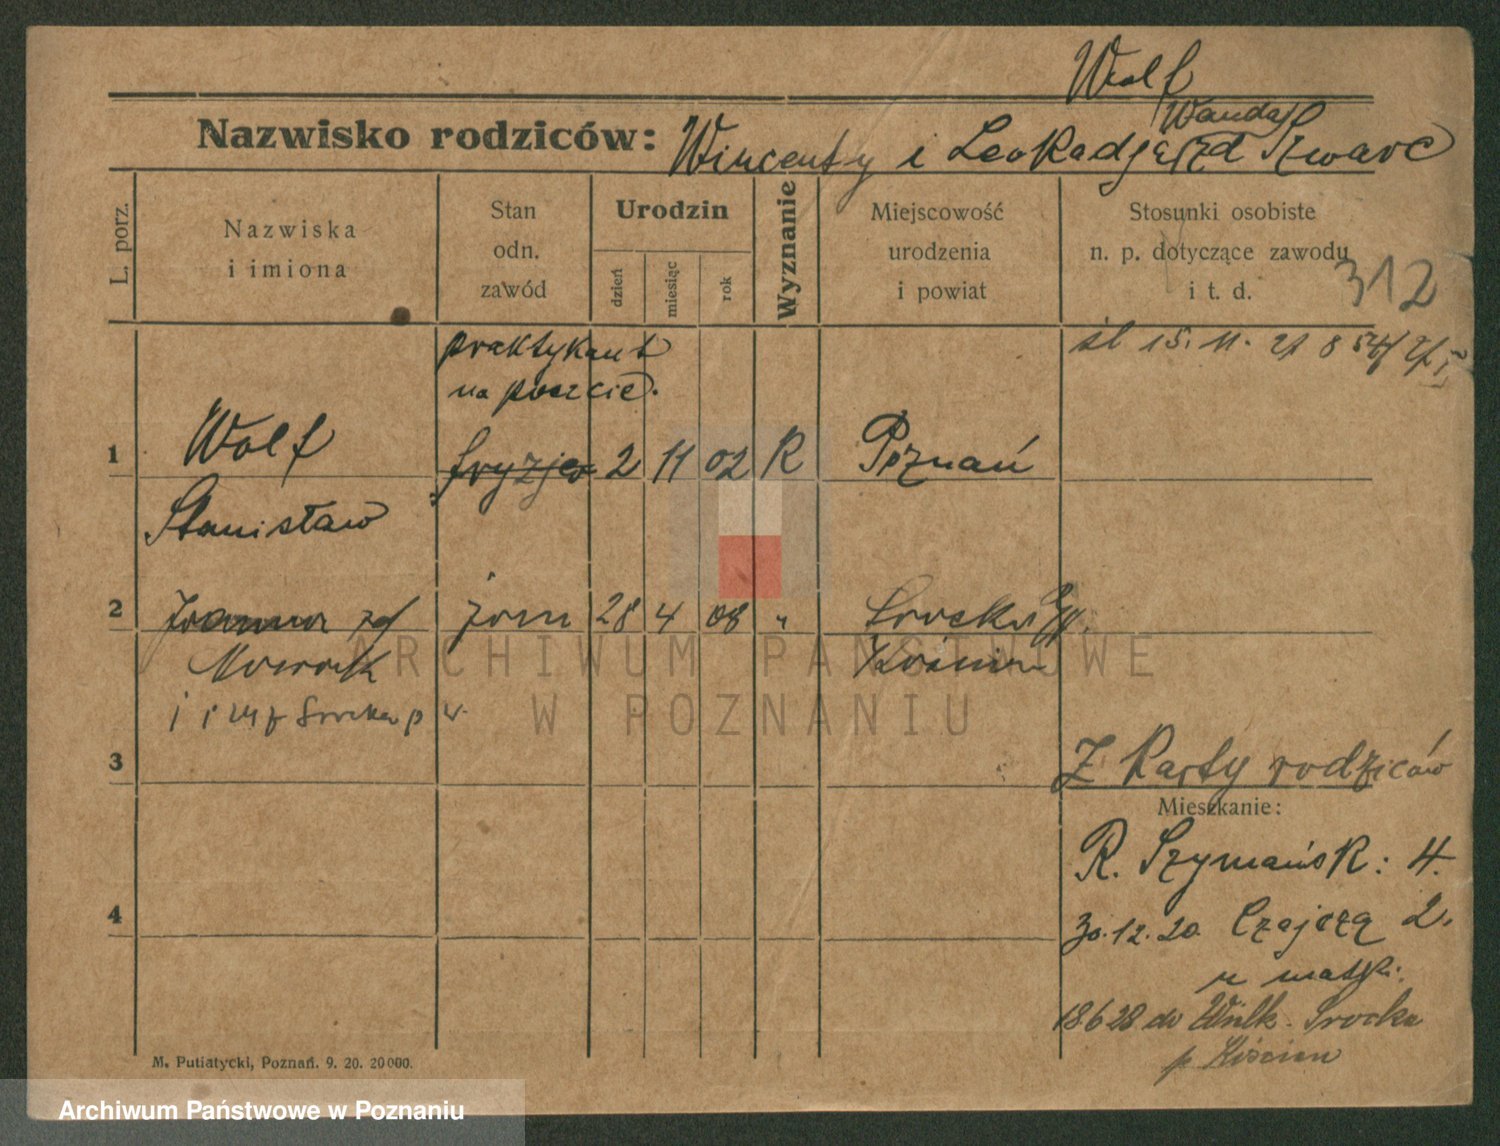 Wolf
Wanda
Nazwisko rodziców: Wincenty i Leokadja Szwarc
L. porz.
Nazwiska
i imiona
Stan
odn.
zawód
Urodzin
dzień
miesiąc
rok
Wyznanie
Miejscowość
urodzenia
i powiat
Stosunki osobiste
n. p. dotyczące zawodu
i t. d.
312
praktykant
na poszcie.
śl 15. 11. 21
1 Wolf fryzjer 2 11 02 R Poznań
Stanisław
2 Joanna zd żona 28 4 08 "
Nowak
3
Z Karty rodziców
Mieszkanie:
R. Szymańsk: 4.
4
30.12.20. Czajczą 2.
u matki.
18 6 28 do Wielk. Srocka
p Kościan
M. Putiatycki, Poznań. 9. 20. 20000.
ARCHIWUM PAŃSTWOWE
W POZNANIU
Archiwum Państwowe w Poznaniu